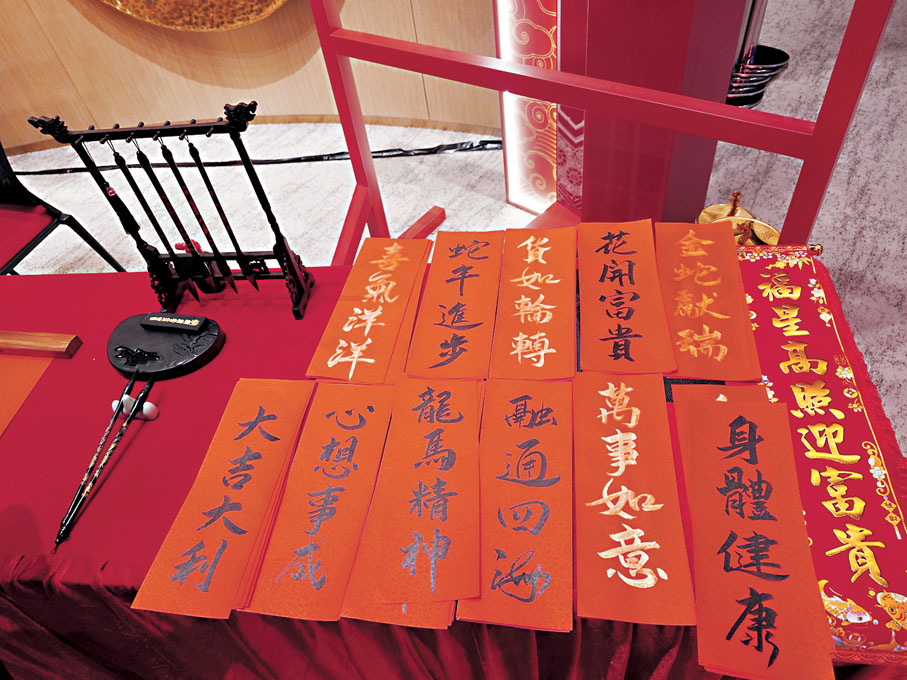 喜氣洋洋
蛇年進步
貨如輪轉
花開富貴
金蛇獻瑞
福星高照迎富貴
大吉大利
心想事成
龍馬精神
融通四海
萬事如意
身體健康